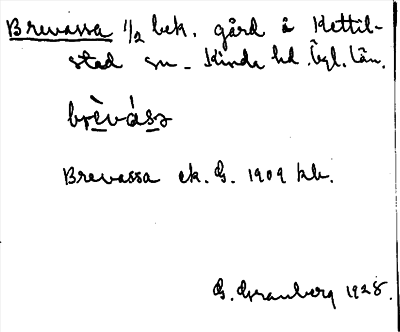 Brevassa 1/2 bek. gård å Kettil-
stad sn. Kinda hd. Ögl. län.
brèvása
Brevassa ek. G. 1909 kb.
G. Granberg 1928.